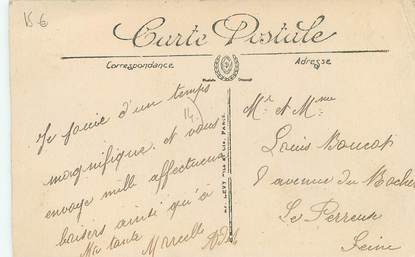 15 €
Carte Postale
Correspondance
Adresse
Je jouie d'un temps
magnifique. et vous
envoye mille affectueux
baisers ainsi qu'à
Ma tante Marcelle
Mr et Mme
Louis Boucot
avenue du
Le Perreux
Seine